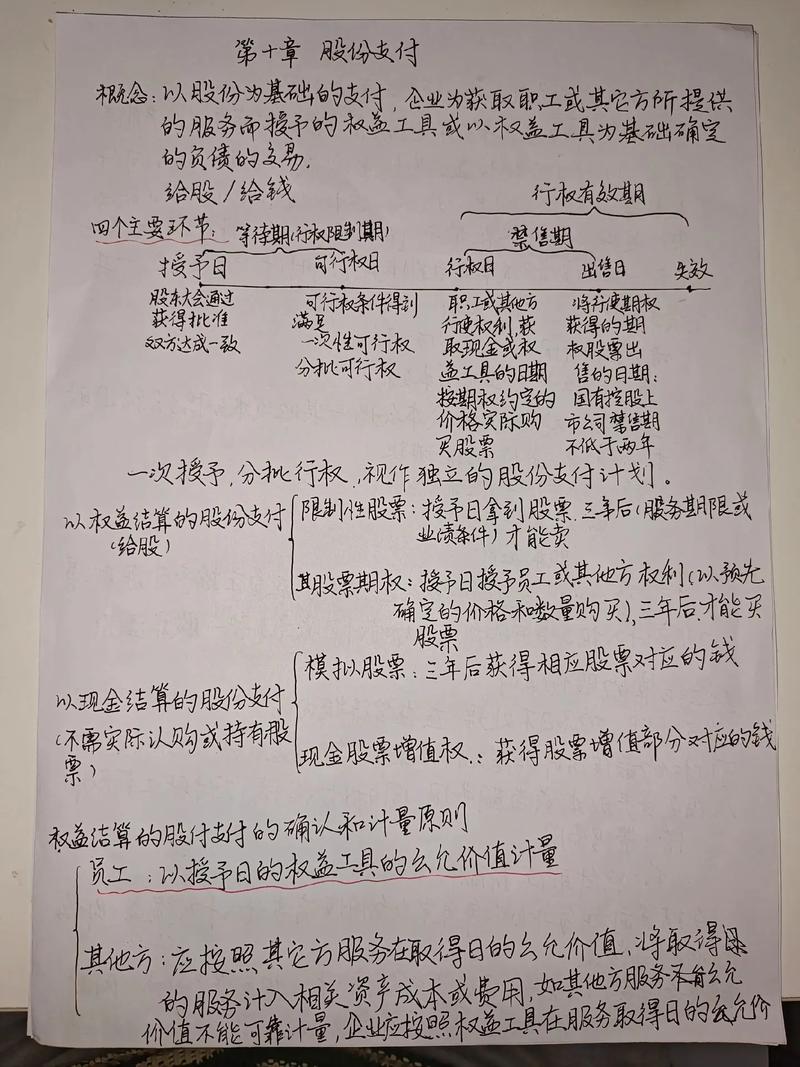 第十章 股份支付
概念：以股份为基础的支付，企业为获取职工或其它方所提供
的服务而授予的权益工具或以权益工具为基础确定
的负债的交易.
给股/给钱
行权有效期
四个主要环节：
等待期(行权限制期)
禁售期
授予日
可行权日
行权日
出售日
失效
股东大会通过
获得批准
双方达成一致
可行权条件得到
满足
一次性可行权
分批可行权
职工或其他方
行使权利,获
取现金或权
益工具的日期
按期权约定的
价格实际购
买股票
将行使期权
获得的期
权股票出
售的日期：
国有控股上
市公司禁售期
不低于两年
一次授予,分批行权,视作独立的股份支付计划。
以权益结算的股份支付
(给股)
限制性股票：授予日拿到股票.三年后(服务期限或
业绩条件)才能卖
股票期权：授予日授予员工或其他方权利(以预先
确定的价格和数量购买),三年后.才能买
股票
以现金结算的股份支付
(不需实际认购或持有股
票)
模拟股票：三年后获得相应股票对应的钱
现金股票增值权：获得股票增值部分对应的钱
权益结算的股付支付的确认和计量原则
员工：以授予日的权益工具的公允价值计量
其他方：应按照其它方服务在取得日的公允价值,将取得
的服务计入相关资产成本或费用,如其他方服务公允
价值不能可靠计量,企业应按照权益工具在服务取得日的公允价